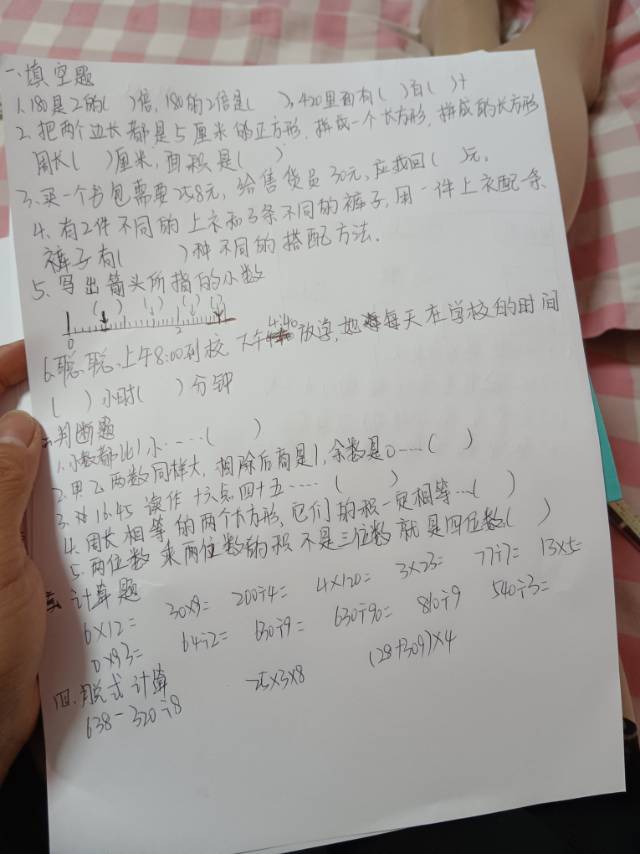 一、填空题
1.180是2的( )倍,180的2倍是( ),420里面有( )百( )十
2.把两个边长都是5厘米的正方形,拼成一个长方形,拼成的长方形
周长( )厘米,面积是( )
3.买一个书包需要25.8元,给售货员30元,应找回( )元。
4.有2件不同的上衣和3条不同的裤子,用一件上衣配一条
裤子有( )种不同的搭配方法.
5.写出箭头所指的小数
( ) ( ) ( ) ( )
0 2
6.聪聪上午8:00到校 下午4:40放学,她每天在学校的时间
( )小时( )分钟
二判断题
1.小数都比1小……( )
2.甲乙两数同样大,相除后商是1,余数是0…( )
3.16.45读作十六点四十五……( )
4.周长相等的两个长方形,它们的积一定相等…( )
5.两位数乘两位数的积不是三位数就是四位数( )
三 计算题
6×12= 30×9= 200÷4= 4×120= 3×23= 77÷7= 13×5=
0×93= 64÷2= 630÷9= 630÷90= 810÷9 540÷3=
四.脱式计算
638-320÷8 25×3×8 (28+309)×4